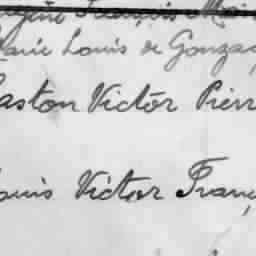 François
Marie Louis de Gonzag
Gaston Victor Pierr
Louis Victor Franç